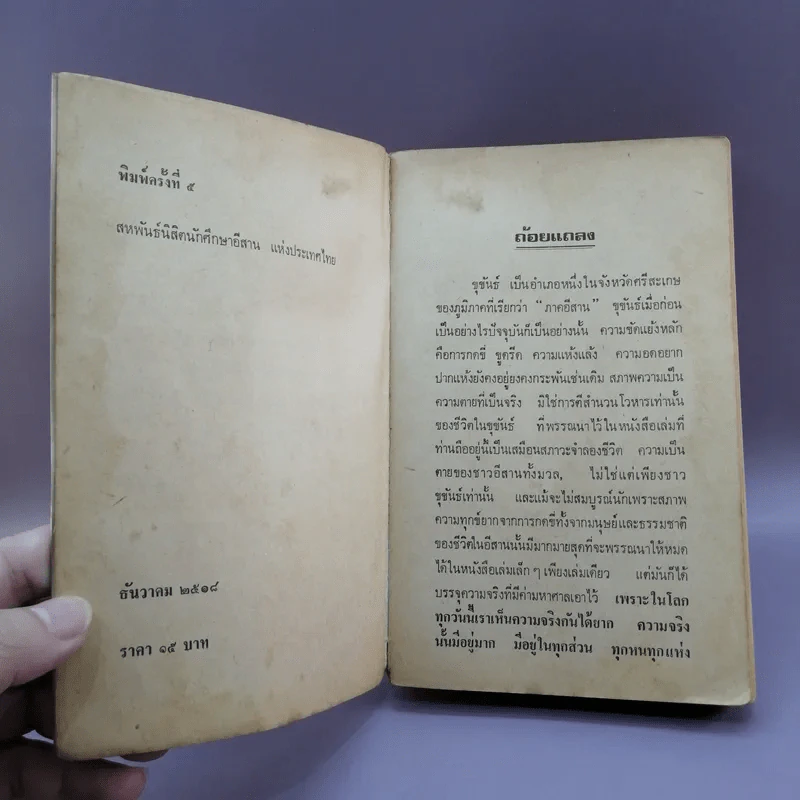 พิมพ์ครั้งที่ ๕
สหพันธ์นิสิตนักศึกษาอีสาน แห่งประเทศไทย
ธันวาคม ๒๕๑๘
ราคา ๑๕ บาท
ถ้อยแถลง
ขุขันธ์ เป็นอำเภอหนึ่งในจังหวัดศรีสะเกษ
ของภูมิภาคที่เรียกว่า “ภาคอีสาน” ขุขันธ์เมื่อก่อน
เป็นอย่างไรปัจจุบันก็เป็นอย่างนั้น ความขัดแย้งหลัก
คือการกดขี่ ขูดรีด ความแห้งแล้ง ความอดอยาก
ปากแห้งยังคงอยู่ยงคงกระพันเช่นเดิม สภาพความเป็น
ความตายที่เป็นจริง มิใช่การตีสำนวนโวหารเท่านั้น
ของชีวิตในขุขันธ์ ที่พรรณนาไว้ในหนังสือเล่มที่
ท่านถืออยู่นี้เป็นเสมือนสภาวะจำลองชีวิต ความเป็น
ตายของชาวอีสานทั้งมวล, ไม่ใช่แต่เพียงชาว
ขุขันธ์เท่านั้น และแม้จะไม่สมบูรณ์นักเพราะสภาพ
ความทุกข์ยากจากการกดขี่ทั้งจากมนุษย์และธรรมชาติ
ของชีวิตในอีสานนั้นมีมากมายสุดที่จะพรรณนาให้หมด
ได้ในหนังสือเล่มเล็ก ๆ เพียงเล่มเดียว แต่มันก็ได้
บรรจุความจริงที่มีค่ามหาศาลเอาไว้ เพราะในโลก
ทุกวันนี้เราเห็นความจริงกันได้ยาก ความจริง
นั้นมีอยู่มาก มีอยู่ในทุกส่วน ทุกหนทุกแห่ง